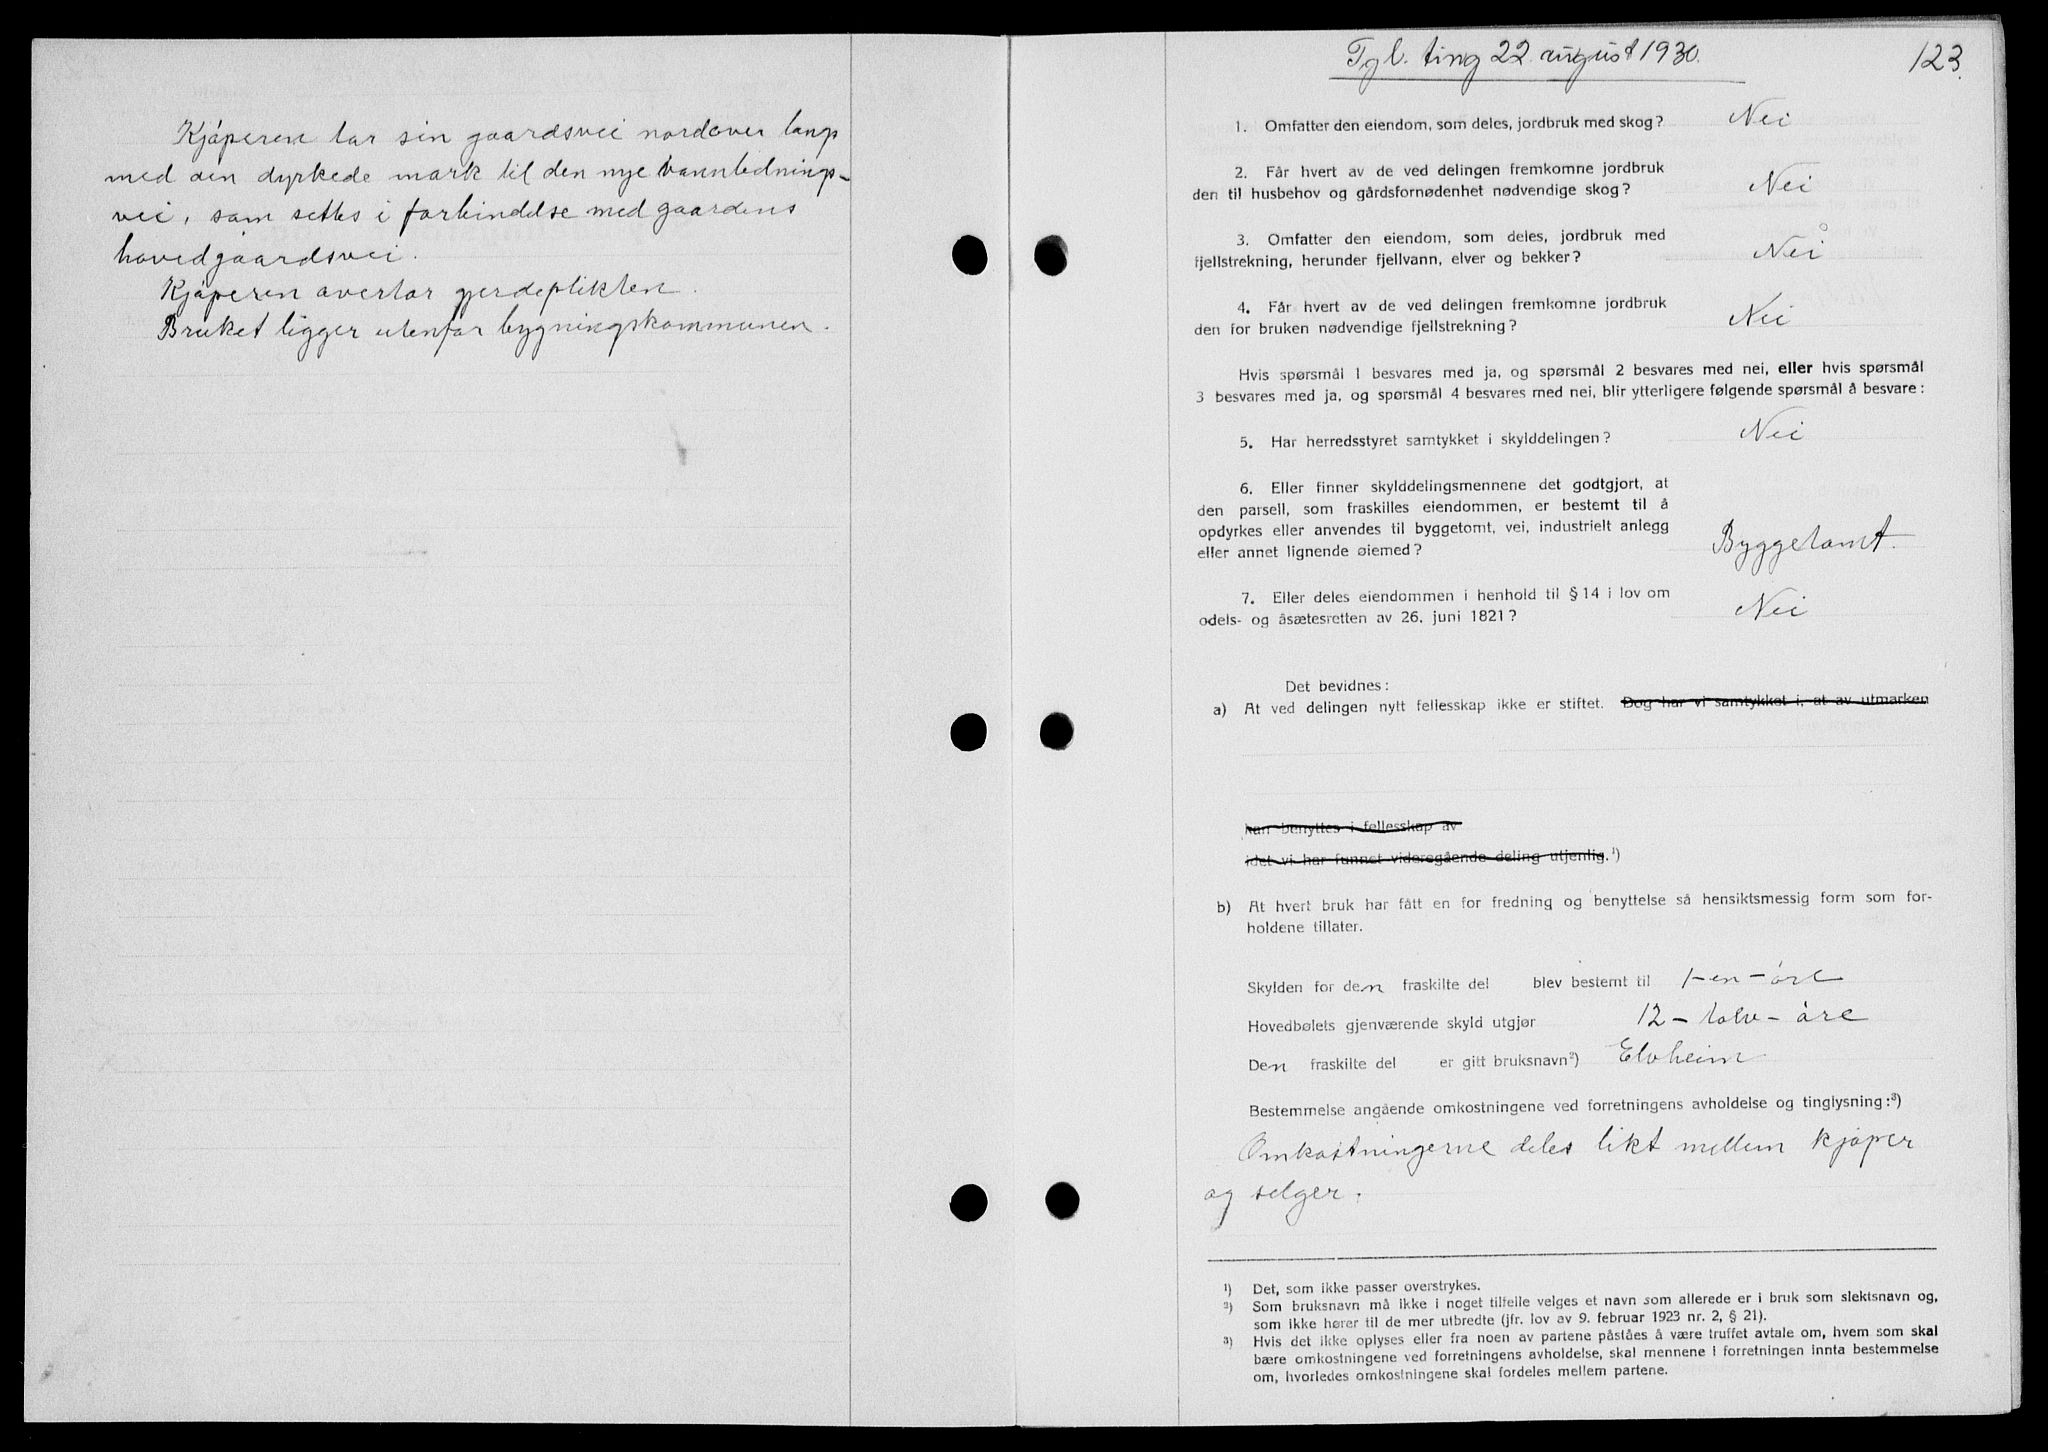 Kjøperen tar sin gaardsvei nordover langs
med den dyrkede mark til den nye vannlednings-
vei, som settes i forbindelse med gaardens
hovedgaardsvei.
Kjøperen overtar gjerdeplikten.
Bruket ligger utenfor bygningskommunen.
Tgl. ting 22 august 1930.
123.
1. Omfatter den eiendom, som deles, jordbruk med skog? Nei
2. Får hvert av de ved delingen fremkomne jordbruk
den til husbehov og gårdsfornødenhet nødvendige skog? Nei
3. Omfatter den eiendom, som deles, jordbruk med
fjellstrekning, herunder fjellvann, elver og bekker? Nei
4. Får hvert av de ved delingen fremkomne jordbruk
den for bruken nødvendige fjellstrekning? Nei
Hvis spørsmål 1 besvares med ja, og spørsmål 2 besvares med nei, eller hvis spørsmål
3 besvares med ja, og spørsmål 4 besvares med nei, blir ytterligere følgende spørsmål å besvare:
5. Har herredsstyret samtykket i skylddelingen? Nei
6. Eller finner skylddelingsmennene det godtgjort, at
den parsell, som fraskilles eiendommen, er bestemt til å
opdyrkes eller anvendes til byggetomt, vei, industrielt anlegg
eller annet lignende øiemed? Byggetomt.
7. Eller deles eiendommen i henhold til § 14 i lov om
odels- og åsætesretten av 26. juni 1821? Nei
Det bevidnes:
a) At ved delingen nytt fellesskap ikke er stiftet. Dog har vi samtykket i, at av utmarken
kan benyttes i fellesskap av
idet vi har funnet videregående deling utjenlig.¹)
b) At hvert bruk har fått en for fredning og benyttelse så hensiktsmessig form som for-
holdene tillater.
Skylden for den fraskilte del blev bestemt til 1-en-øre
Hovedbølets gjenværende skyld utgjør 12-tolv-øre
Den fraskilte del er gitt bruksnavn²) Elvheim
Bestemmelse angående omkostningene ved forretningens avholdelse og tinglysning:³)
Omkostningerne deles likt mellem kjøper
og selger.
¹) Det, som ikke passer overstrykes.
²) Som bruksnavn må ikke i noget tilfelle velges et navn som allerede er i bruk som slektsnavn og,
som ikke hører til de mer utbredte (jfr. lov av 9. februar 1923 nr. 2, § 21).
³) Hvis det ikke oplyses eller fra noen av partene påståes å være truffet avtale om, hvem som skal
bære omkostningene ved forretningens avholdelse, skal mennene i forretningen innta bestemmelse
om, hvorledes omkostningene skal fordeles mellem partene.